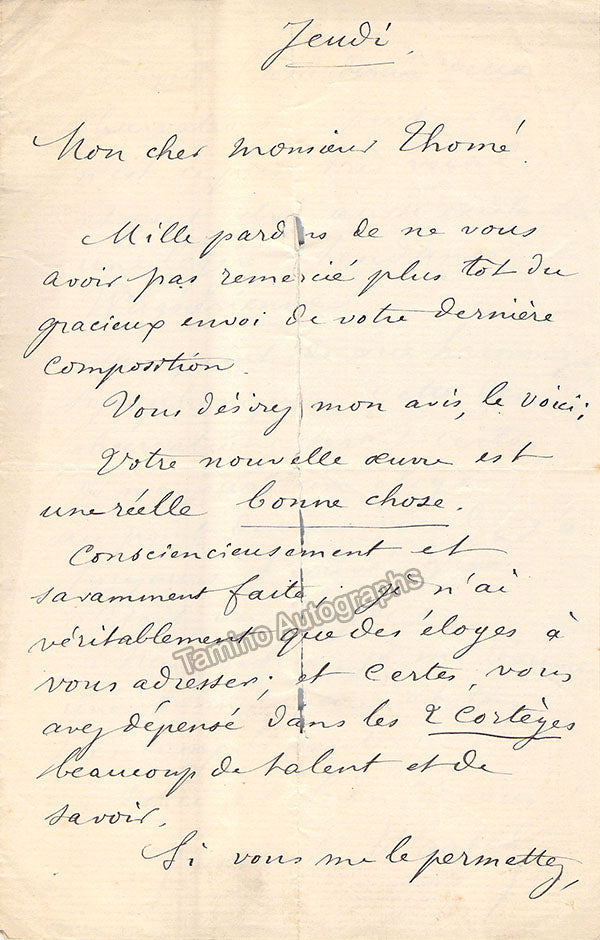 Jeudi.
Mon cher monsieur Thomé.
Mille pardons de ne vous
avoir pas remercié plus tot du
gracieux envoi de votre dernière
composition.
Vous désirez mon avis, le voici;
Votre nouvelle œuvre est
une réelle bonne chose.
Consciencieusement et
savamment faite, je n'ai
véritablement que des éloges à
vous adresser; et certes, vous
avez dépensé dans les 2 Cortèges
beaucoup de talent et de
savoir.
Si vous me le permettez,
Tamino Autographs